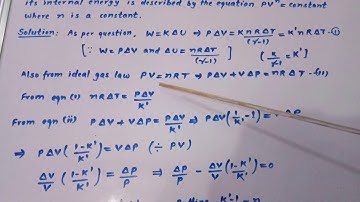 its internal energy is described by the equation PVⁿ = constant
where n is a constant.
Solution: As per question, W = KΔU ⇒ PΔV = K nRΔT/(γ-1) = K' nRΔT -(i)
[∵ W = PΔV and ΔU = nRΔT/(γ-1)] (K/(γ-1) = K')
Also from ideal gas law PV = nRT ⇒ PΔV + VΔP = nRΔT -(ii)
From eqn (i) nRΔT = PΔV/K'
From eqn (ii) PΔV + VΔP = PΔV/K' ⇒ PΔV(1/K' - 1) = ΔP
⇒ PΔV((1-K')/K') = VΔP (÷ PV)
ΔV/V ((1-K')/K') = ΔP/P ⇒ ΔP/P - ΔV/V ((1-K')/K') = 0
K'-1 = n